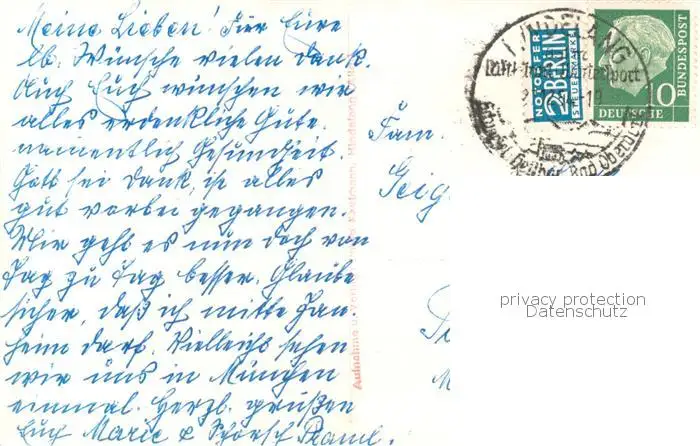 Meine Lieben! Für Eure
lb. Wünsche vielen Dank.
Auch Euch wünschen wir
alles erdenkliche Gute.
namentlich Gesundheit.
Gott sei Dank, ist alles
gut vorbei gegangen.
Mir geht es nun doch von
Tag zu Tag besser. Glaube
sicher, daß ich mitte Jan.
heim darf. Vielleicht sehen
wir uns in München
einmal. Herzl. grüßen
Euch Marie & Schorsch
Fam.
Geig
NOTOPFER
2 BERLIN
STEUERMARKE
HINDELANG
Bad Ob
10
DEUTSCHE
BUNDESPOST
Aufnahme u. Hindelang
privacy protection
Datenschutz